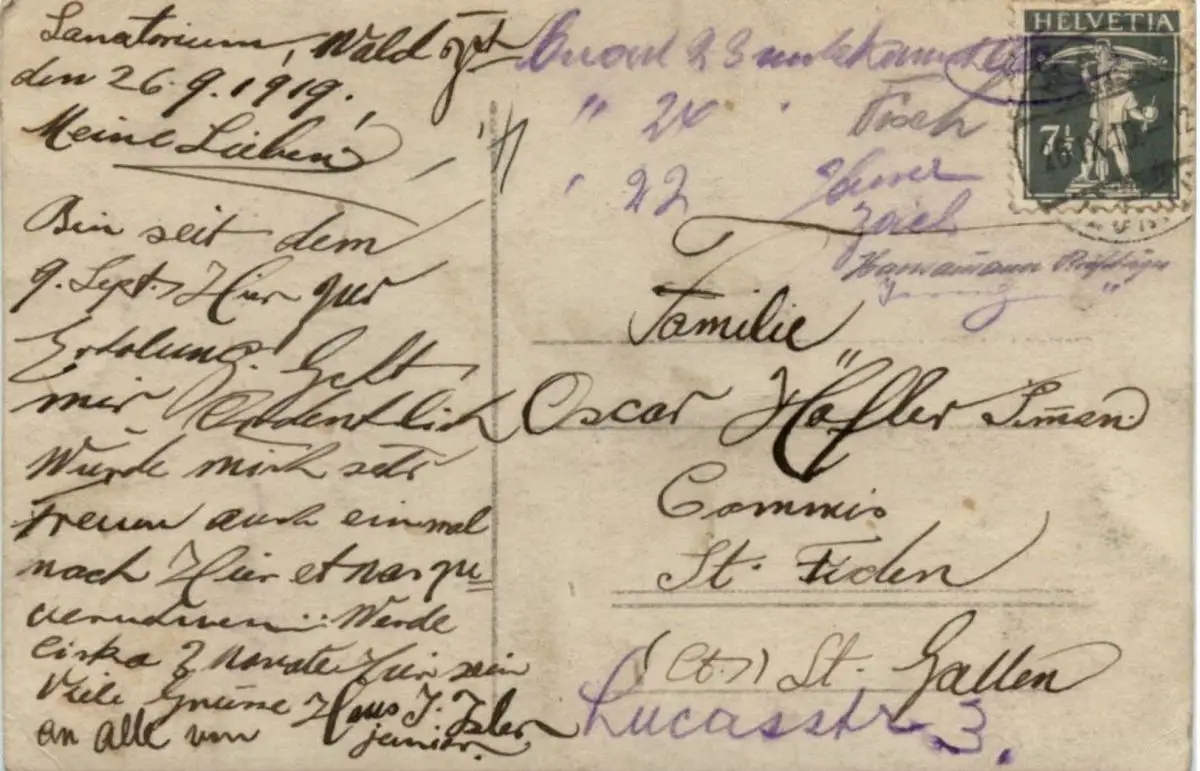 Sanatorium, Wald
den 26.9.1919.
Meine Lieben!
Bin seit dem
9. Sept. Hier zur
Erholung. Geht
mir Ordentlich
Würde mich sehr
Freuen auch einmal
nach Hier etwas zu
vernehmen. Werde
cirka 2 Monate Hier sein
Viele Grüsse
an Alle von Hans J. Isler
junior.
23 unbekannt
" 24 Fisch
" 22
HELVETIA
7½
Familie
Oscar Häfler
Commis
St. Fiden
(Ct.) St. Gallen
Lucasstr. 3.